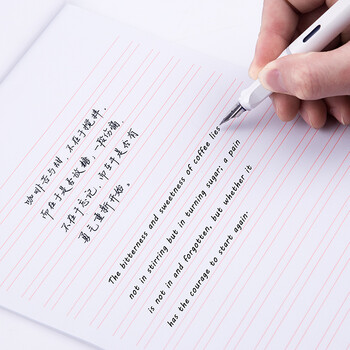 咖啡苦与甜,不在于搅拌,
而在于是否放糖,一段伤痛,
不在于忘记,而在于是否有
勇气重新开始。
The bitterness and sweetness of coffee lies
not in stirring but in turning sugar; a pain
is not in and forgotten, but whether it
has the courage to start again.